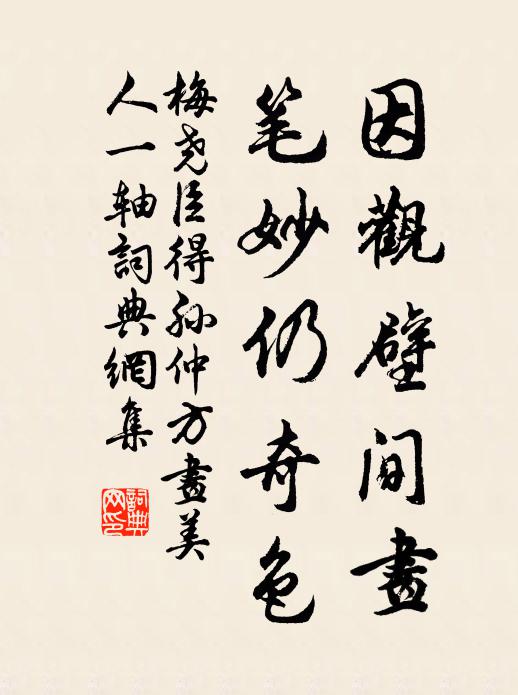 因觀壁間畫
笔妙仍奇色
梅尧臣得孫仲方畫美
人一軸詞典網集
詞典
网印